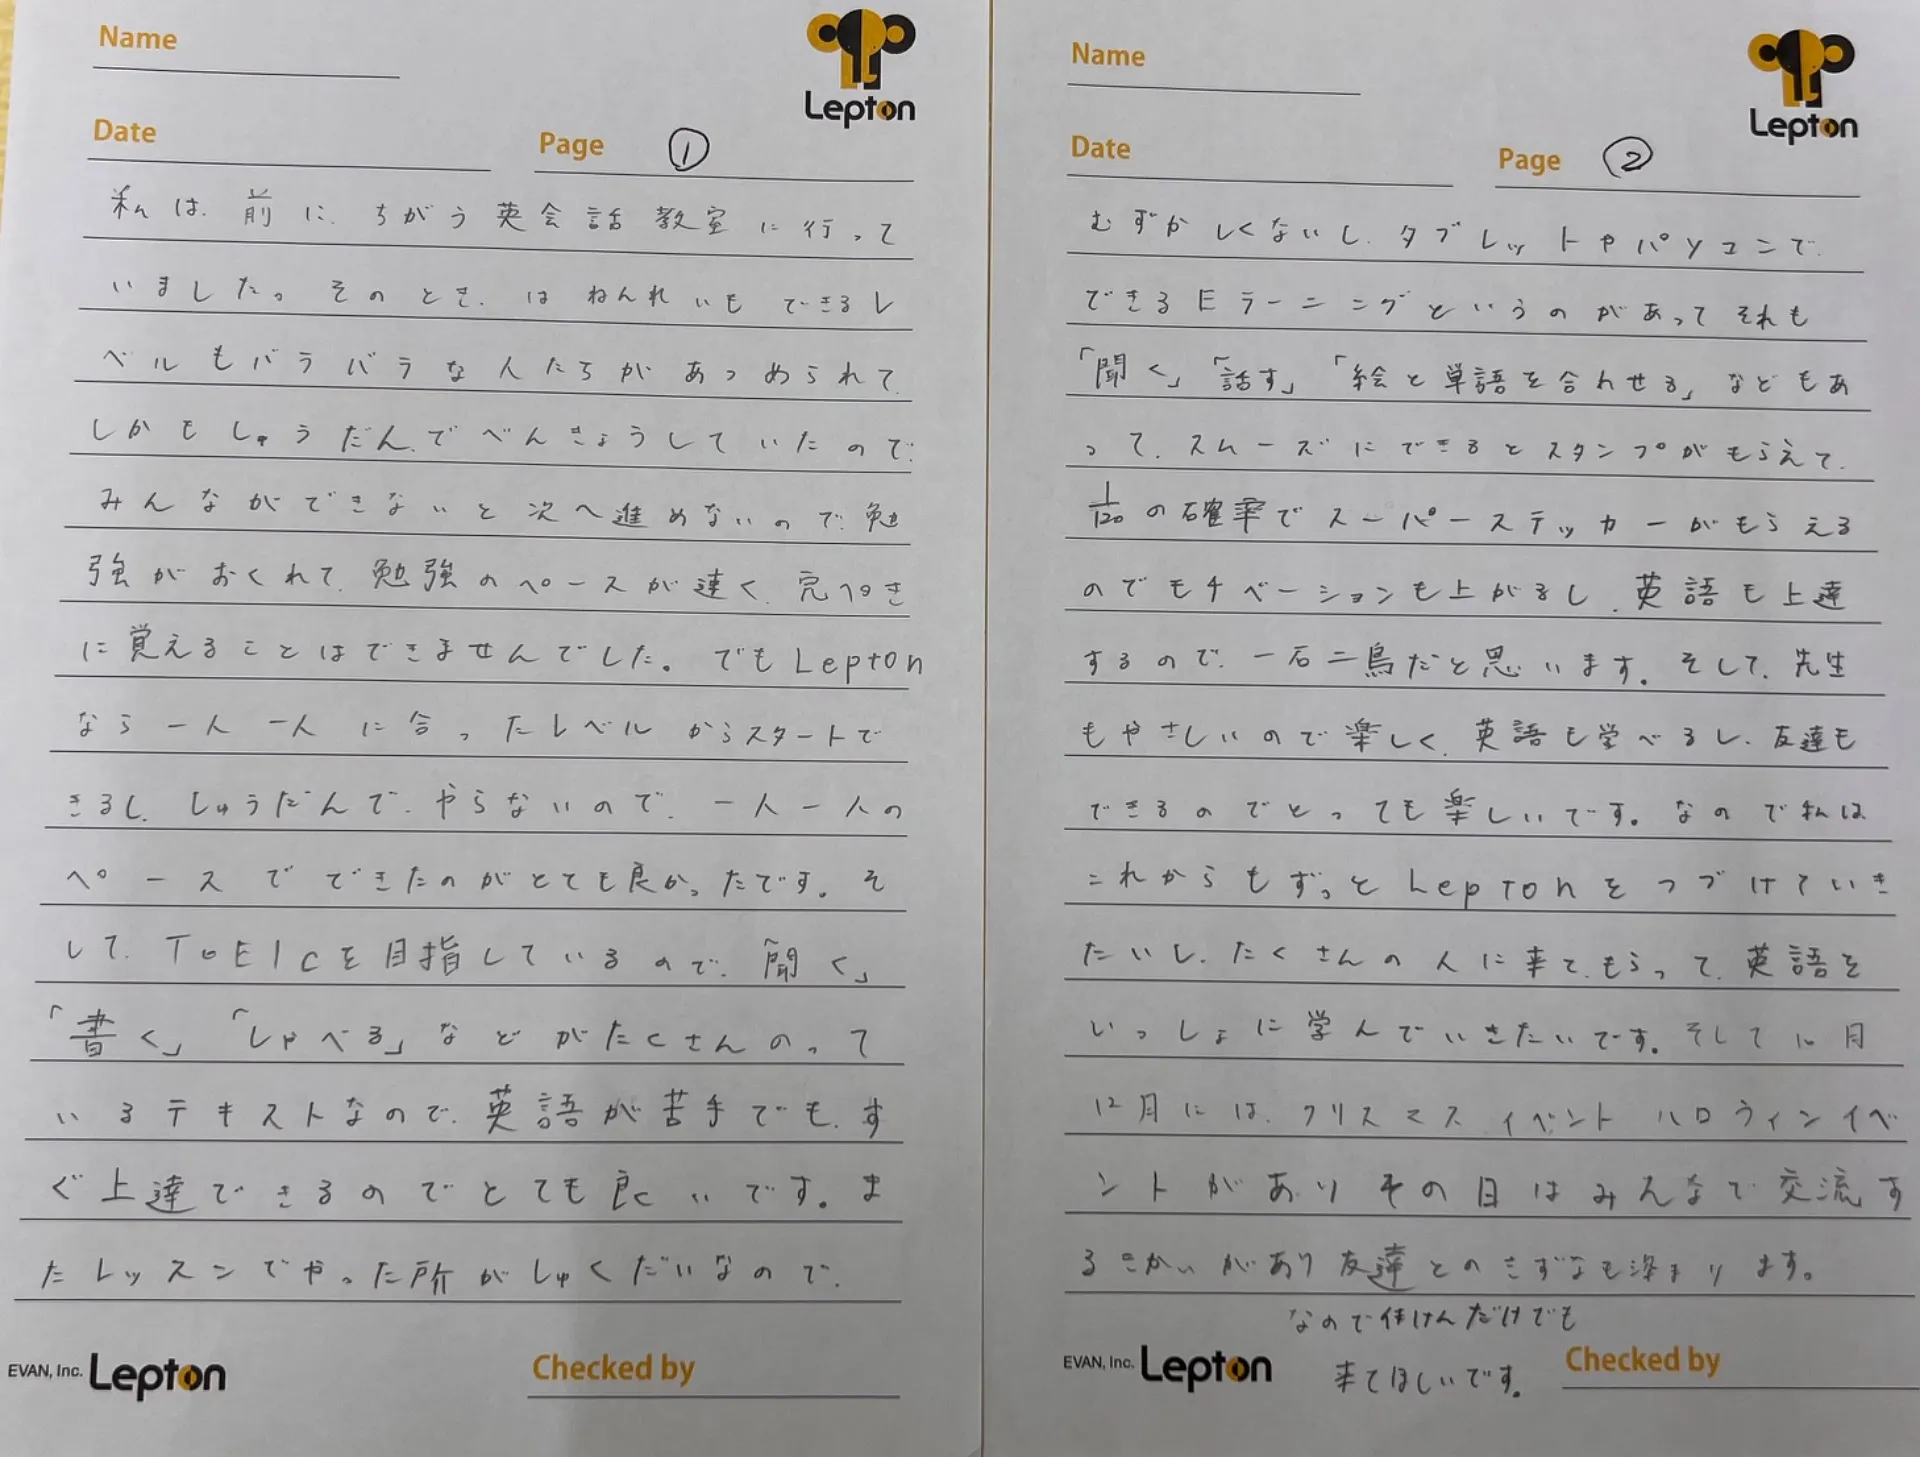 Name
Lepton
Date
Page ①
私は、前に、ちがう英会話教室に行って
いました。そのとき、はねんれいもできるレ
ベルもバラバラな人たちがあつめられて、
しかもしゅうだん、でべんきょうしていたので、
みんなができないと次へ進めないので、勉
強がおくれて、勉強のペースが速く、完ペき
に覚えることはできませんでした。でもLepton
なら一人一人に合ったレベルからスタートで
きるし、しゅうだんで、やらないので、一人一人の
ペースでできたのがとても良かったです。そ
して、TOEICを目指しているので、「聞く」
「書く」「しゃべる」などがたくさんのって
いるテキストなので、英語が苦手でも、す
ぐ上達できるのでとても良いです。ま
たレッスンでやった所がしゅくだいなので、
EVAN, Inc. Lepton
Checked by
Name
Lepton
Date
Page ②
むずかしくないし、タブレットやパソコンで、
できるEラーニングというのがあってそれも
「聞く」「話す」「絵と単語を合わせる」などもあ
って、スムーズにできるとスタンプがもらえて、
1/120の確率でスーパーステッカーがもらえる
のでモチベーションも上がるし、英語も上達
するので、一石二鳥だと思います。そして、先生
もやさしいので楽しく、英語も学べるし、友達も
できるのでとっても楽しいです。なので私は
これからもずっとLeptonをつづけていき
たいし、たくさんの人に来て、もらって、英語を
いっしょに学んでいきたいです。そして10月
12月には、クリスマスイベント ハロウィンイベ
ントがありその日はみんなで交流す
るきかいがあり友達とのきずなも深まります。
なので体けんだけでも
来てほしいです。
EVAN, Inc. Lepton
Checked by